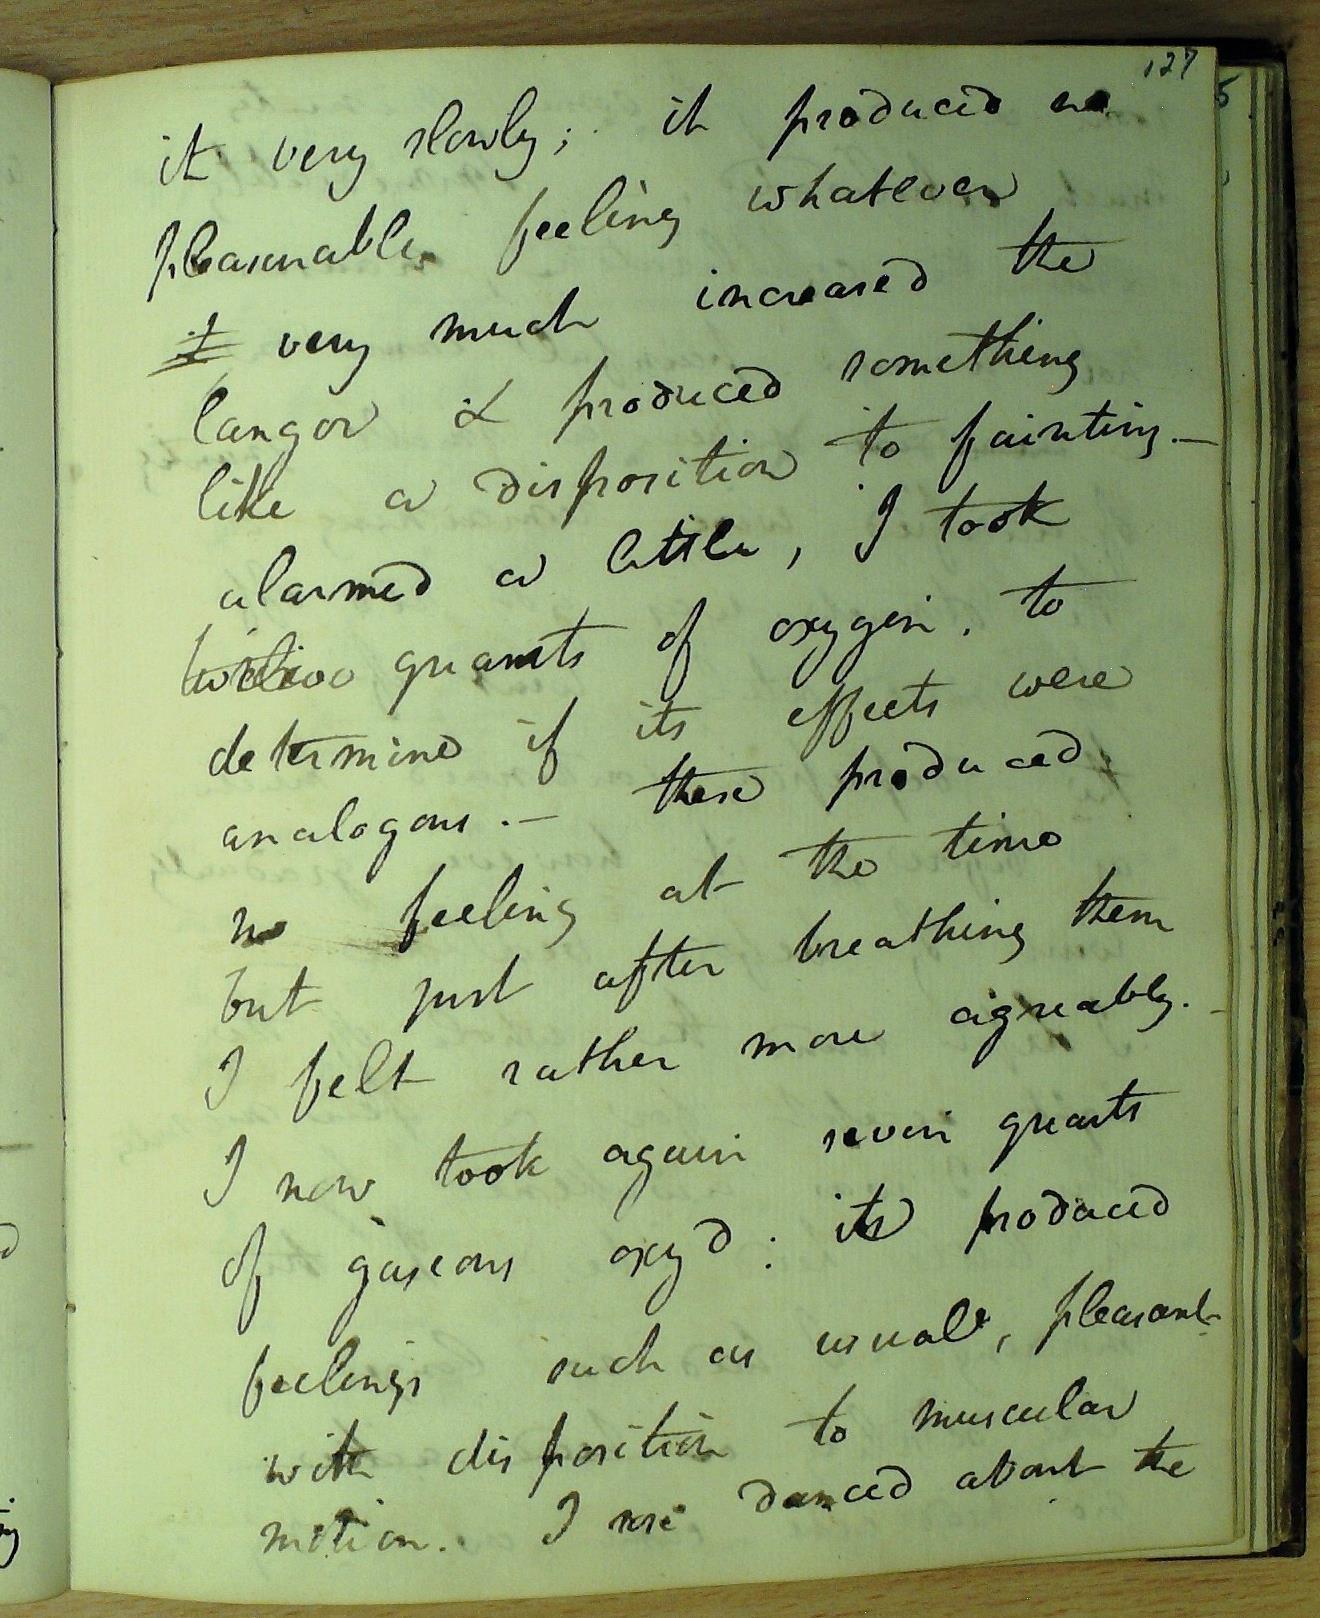 127
it very slowly; it produced no
pleasurable feeling whatever
I very much increased the
langor & produced something
like a disposition to fainting. —
alarmed a little, I took
quarts of oxygen, to
determine if its effects were
analogous. — these produced
no feeling at the time
but just after breathing them
I felt rather more agreably. —
I now took again seven quarts
of gaseous oxyd: it produced
feelings such as usual, pleasant
with disposition to muscular
motion. I rose danced about the